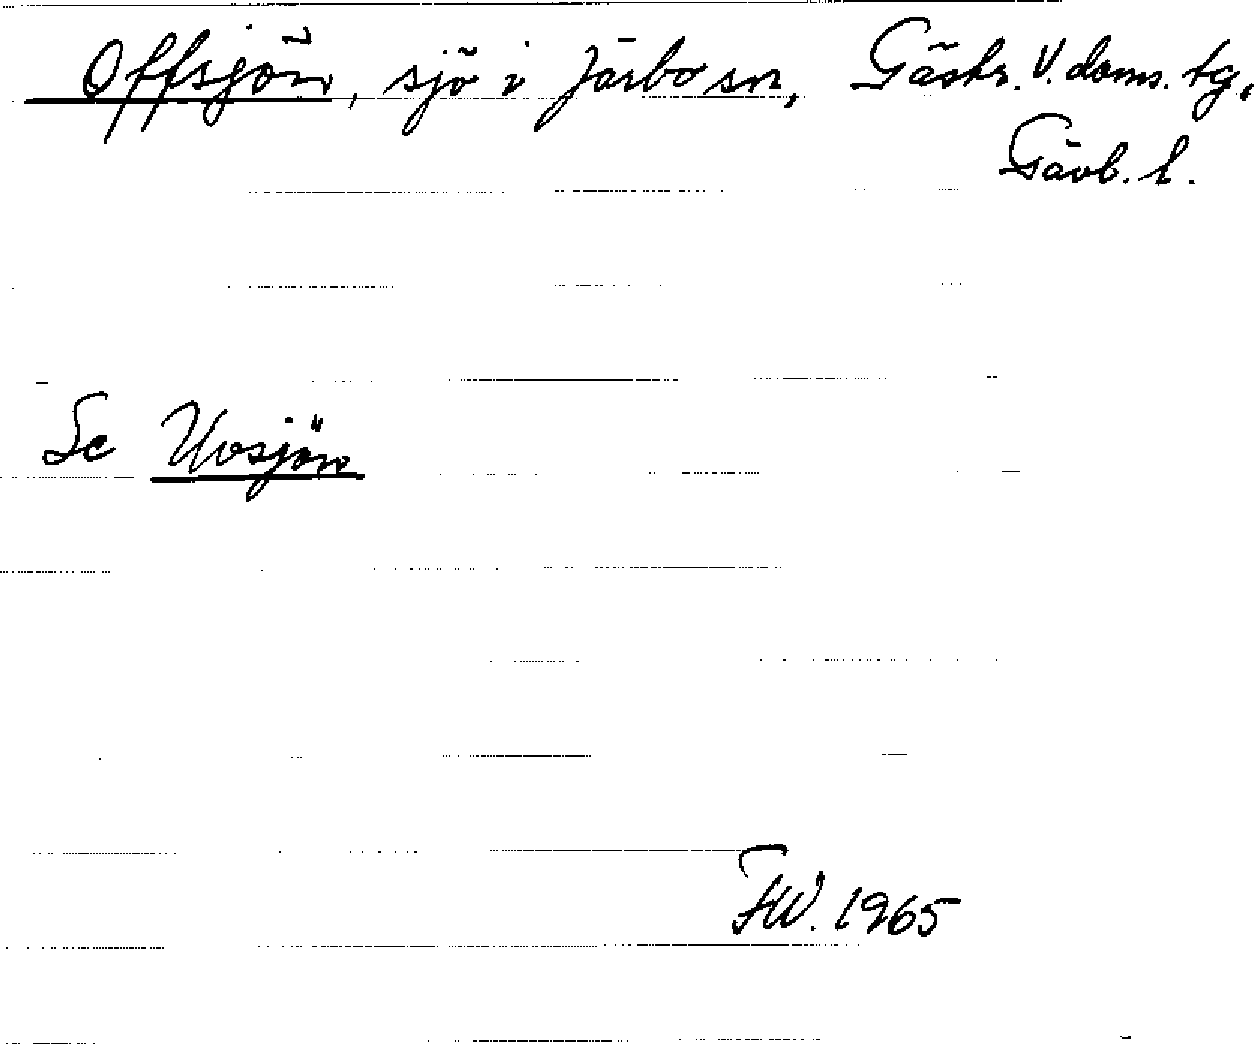 Offsjön, sjö i Järbo sn, Gästr. V. doms. tg,
Gävb. l.
Se Uvsjön
FW. 1965